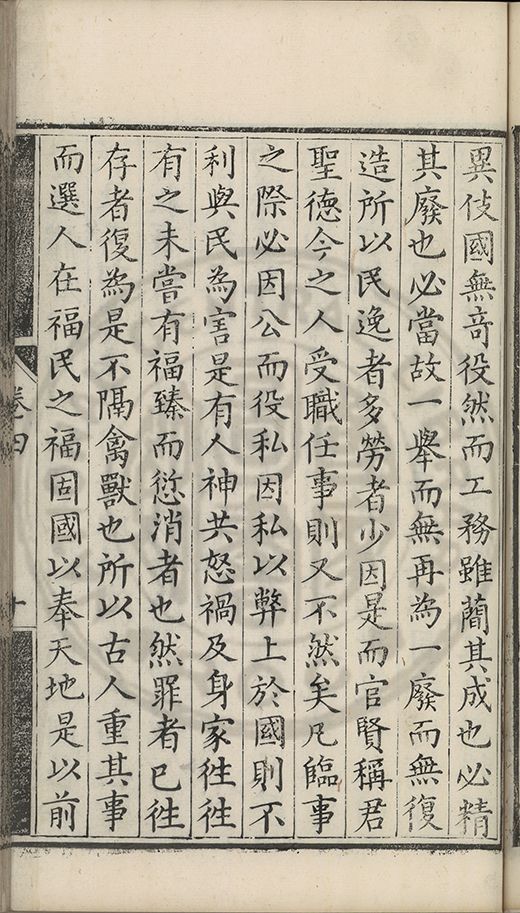 異伎國無竒役然而工務雖蕳其成也必精
其廢也必當故一舉而無再為一廢而無復
造所以民逸者多勞者少因是而官賢稱君
聖德今之人受職任事則又不然矣凡臨事
之際必因公而役私因私以弊上於國則不
利與民為害是有人神共怒禍及身家徃徃
有之未嘗有福臻而愆消者也然罪者已徃
存者復為是不隔禽獸也所以古人重其事
而選人在福民之福固國以奉天地是以前
卷四
十